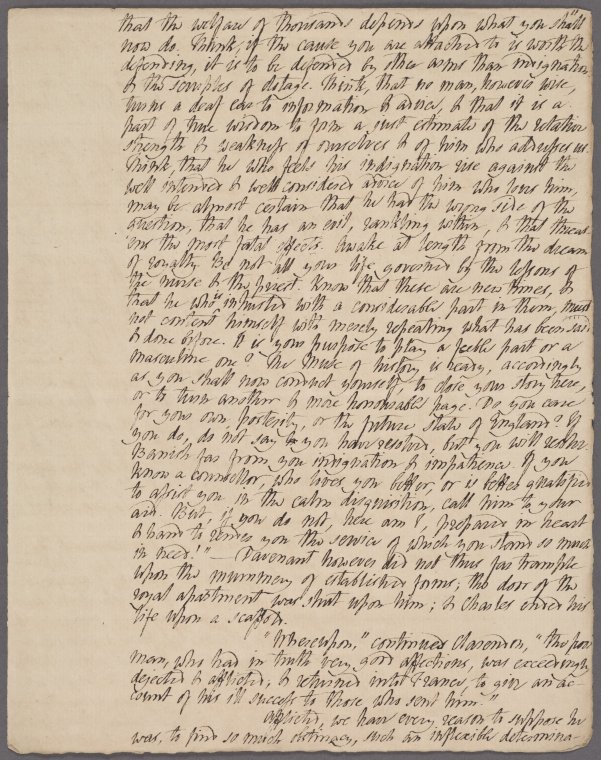 that the welfare of thousands depends upon what you shall
now do. Think, if the cause you are attached to is worth the
defending, it is to be defended by other arms than indignation
& the scruples of dotage. Think, that no man, however wise,
turns a deaf ear to information & advice, & that it is a
part of true wisdom to form a just estimate of the relative
strength & weakness of ourselves & of him who addresses us.
Think, that he who feels his indignation rise against the
well intended & well considered advice of him who loves him,
may be almost certain that he has the wrong side of the
question, that he has an evil, rankling within, & that threat
ens the most fatal effects. Awake at length from the dream
of royalty. Be not all your life governed by the lessons of
the nurse & the priest. Know that these are new times, &
that he who is intrusted with a considerable part in them, must
not content himself with merely repeating what has been said
& done before. Is it your purpose to play a feeble part or a
masculine one? The Muse of history is ready, accordingly
as you shall now conduct yourself, to close your story here,
or to turn another & more honourable page. Do you care
for your own posterity, or the future state of England? If
you do, do not say you have resolved, but you will resolve.
Banish far from you indignation & impatience. If you
know a counsellor, who loves you better, or is better qualified
to assist you in the calm disquisition, call him to your
aid. But, if you do not, here am I, prepared in heart
& hand to render you the service of which you stand so much
in need!" — Davenant however did not thus far trample
upon the mummery of established forms; the door of the
royal apartment was shut upon him; & Charles ended his
life upon a scaffold.
"Whereupon," continues Clarendon, "the poor
man, who had in truth very good affections, was exceedingly
dejected & afflicted; & returned into France, to give an ac-
count of his ill success to those who sent him."
Afflicted, we have every reason to suppose he
was, to find so much obstinacy, such an inflexible determina-